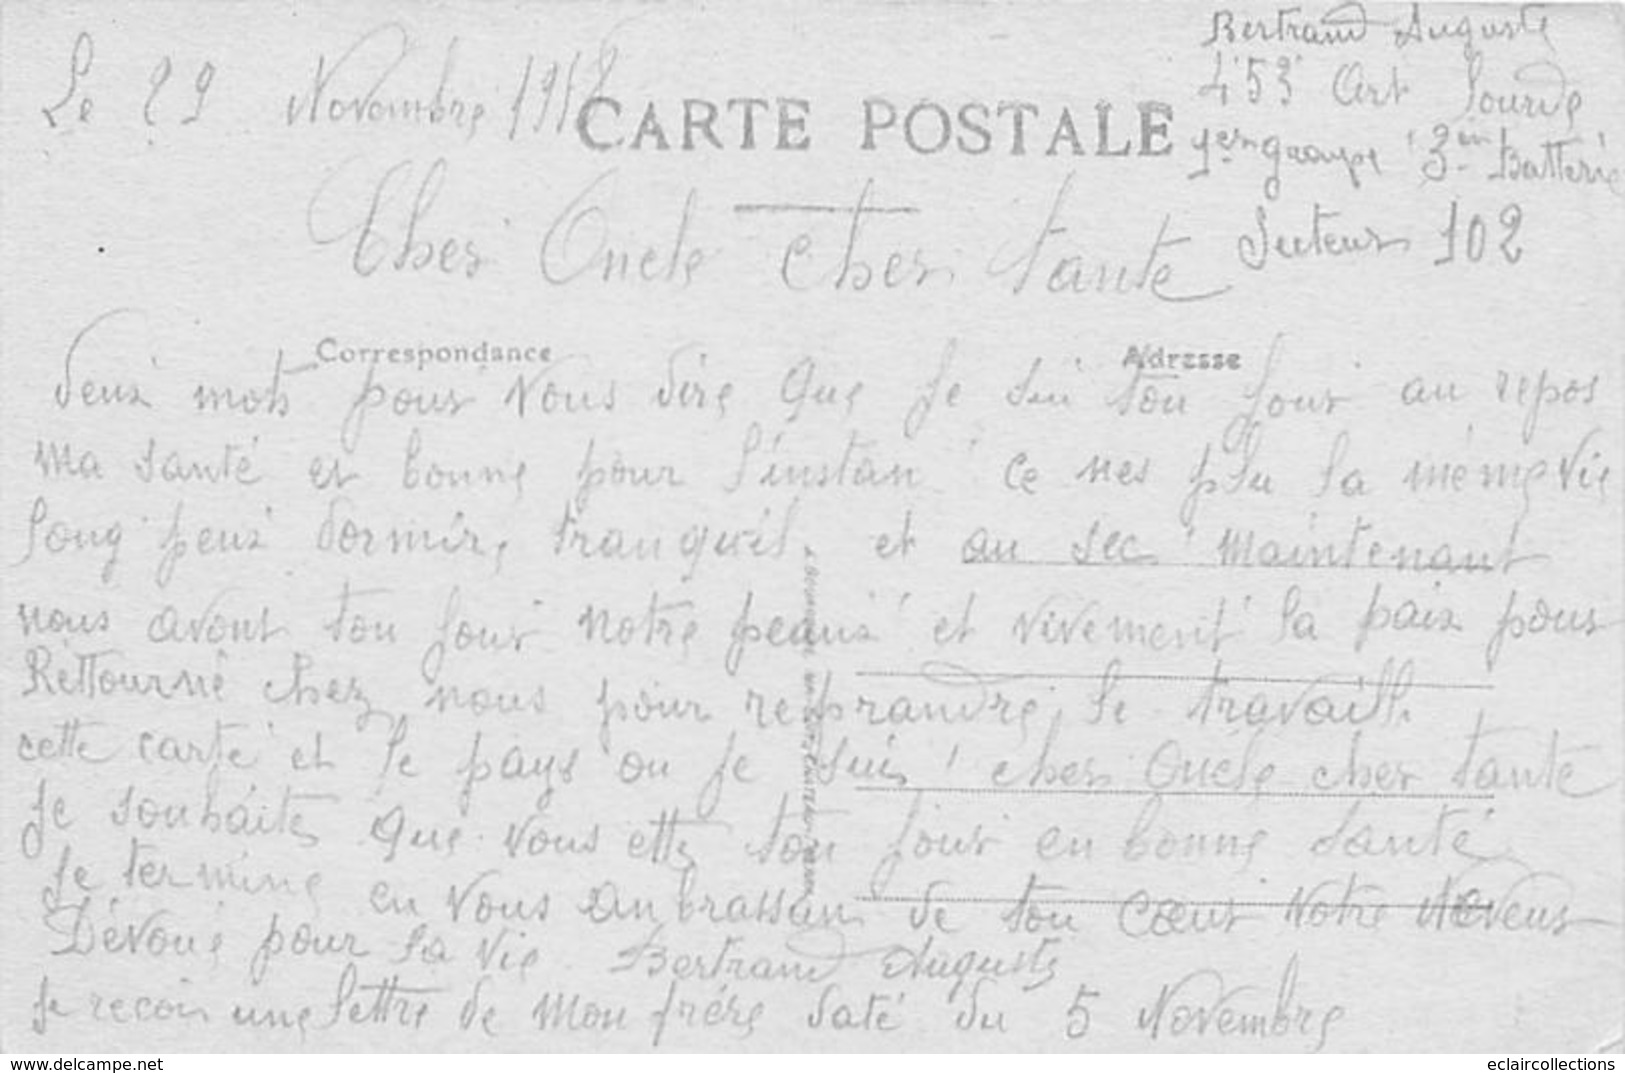 Bertrand Auguste
453 Art Lourde
1er groupe 3em Batterie
Secteur 102
Le 29 Novembre 1918
CARTE POSTALE
Cher Oncle cher Tante
Correspondance
Adresse
deux mots pour vous dire que je sui tou jour au repos
ma santé et bonne pour l'instan ce nes plu la même vie
long peux dormire tranquil et au sec maintenant
nous avont tou jour notre peaux et vivement la paix pour
Rettourné chez nous pour reprandre le travaill
cette carte et le pays ou je suis cher Oncle cher tante
je souhaite que vous ette tou jour en bonne santé
je termine en vous anbrassan de tou cœur votre Neveux
Dévoué pour la vie Bertrand Auguste
je reçois une lettre de mon frère daté du 5 Novembre
www.delcampe.net
eclaircollections